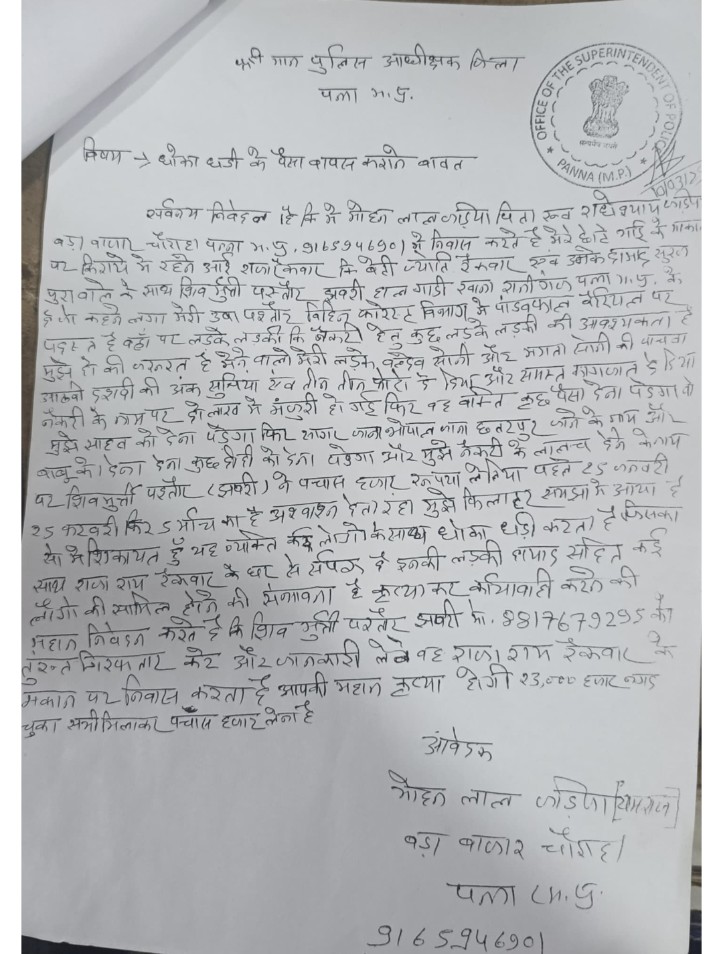 पुलिस अधीक्षक जिला
पन्ना म.प्र.
OFFICE OF THE SUPERINTENDENT OF POLICE
PANNA (M.P.)
विषय → धोका धडी के पैसा वापस कराने बावत
निवेदन है कि मैं मोहन लाल जड़िया पिता स्व राधेश्याम जड़िया
बड़ा बाजार चौराहा पन्ना म.प्र. 9165946901 में निवास करते है मेरे छोटे भाई के मकान
पर किराये में रहने आई राजा रैकवार कि बेटी ज्योति रैकवार एवं उनके दामाद सूरज
पुरा वाले के साथ शिव मुर्ती परस्तोर झबरी हाल गाडी रानीगंज पन्ना म.प्र. के
कहने लगा मेरी उषा परस्तोर फारेस्ट विभाग में पांडवफाल पर
पदस्त है वहाँ पर लडके लडकी कि नौकरी हेतु कुछ लडके लडकी की आवश्यकता है
मुझे दो की जरूरत है मैने मेरी लडके सोनी और ममता सोनी की पाचवी
आठवी दसवी की अंक सुचिया एवं तीन तीन फोटो दे दिया और समस्त कागजात दे दिया
नौकरी के नाम पर दो लाख में मंजुरी हो गई फिर वह बोला कुछ पैसा देना पडेगा
मुझे साहब को देना पडेगा फिर सागर जाना भोपाल जाना छतरपुर जाने के नाम और
बाबू को देना देना कुछ को देना पडेगा और मुझे नौकरी के लालच देने के नाम
पर शिवमुर्ती परस्तोर (झबरी) ने पचास हजार रूपया ले लिया पहले 25 जनवरी
25 फरवरी फिर 5 मार्च का है देता रहा मुझे समझ में आया है
यह व्यक्ति कई लोगो के साथ धोका धडी करता है जिसका
साथ राजा राम रैकवार के घर से संपर्क है इनकी लडकी दामाद सहित कई
लोगो की सामिल होने की संभावना है कृप्या कर कार्यावाही करने की
महान निवेदन करते है कि शिव मुर्ती परस्तोर झबरी मो. 8817679295 को
तुरन्त गिरफ्तार करे और जानकारी लेवे वह राजा राम रैकवार के
मकान पर निवास करता है आपकी महान कृप्या होगी 23,000 हजार नगद
चुका सभी मिलाकर पचास हजार लेना है
आवेदक
मोहन लाल जड़िया
बड़ा बाजार चौराहा
पन्ना म.प्र.
9165946901